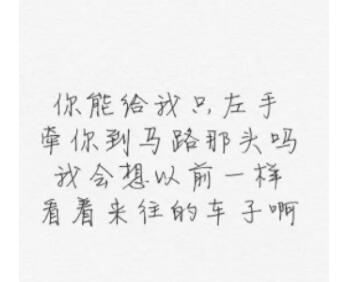 你能给我只左手
牵你到马路那头吗
我会想以前一样
看着来往的车子啊